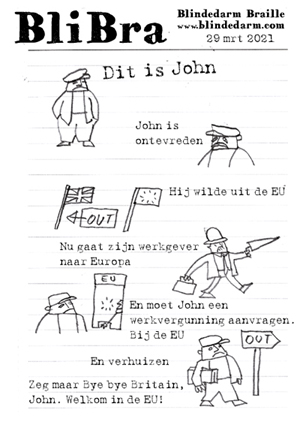 BliBra
Blindedarm Braille
www.blindedarm.com
29 mrt 2021
Dit is John
John is
ontevreden
Hij wilde uit de EU
OUT
Nu gaat zijn werkgever
naar Europa
EU
En moet John een
werkvergunning aanvragen.
Bij de EU
OUT
En verhuizen
Zeg maar Bye bye Britain,
John. Welkom in de EU!